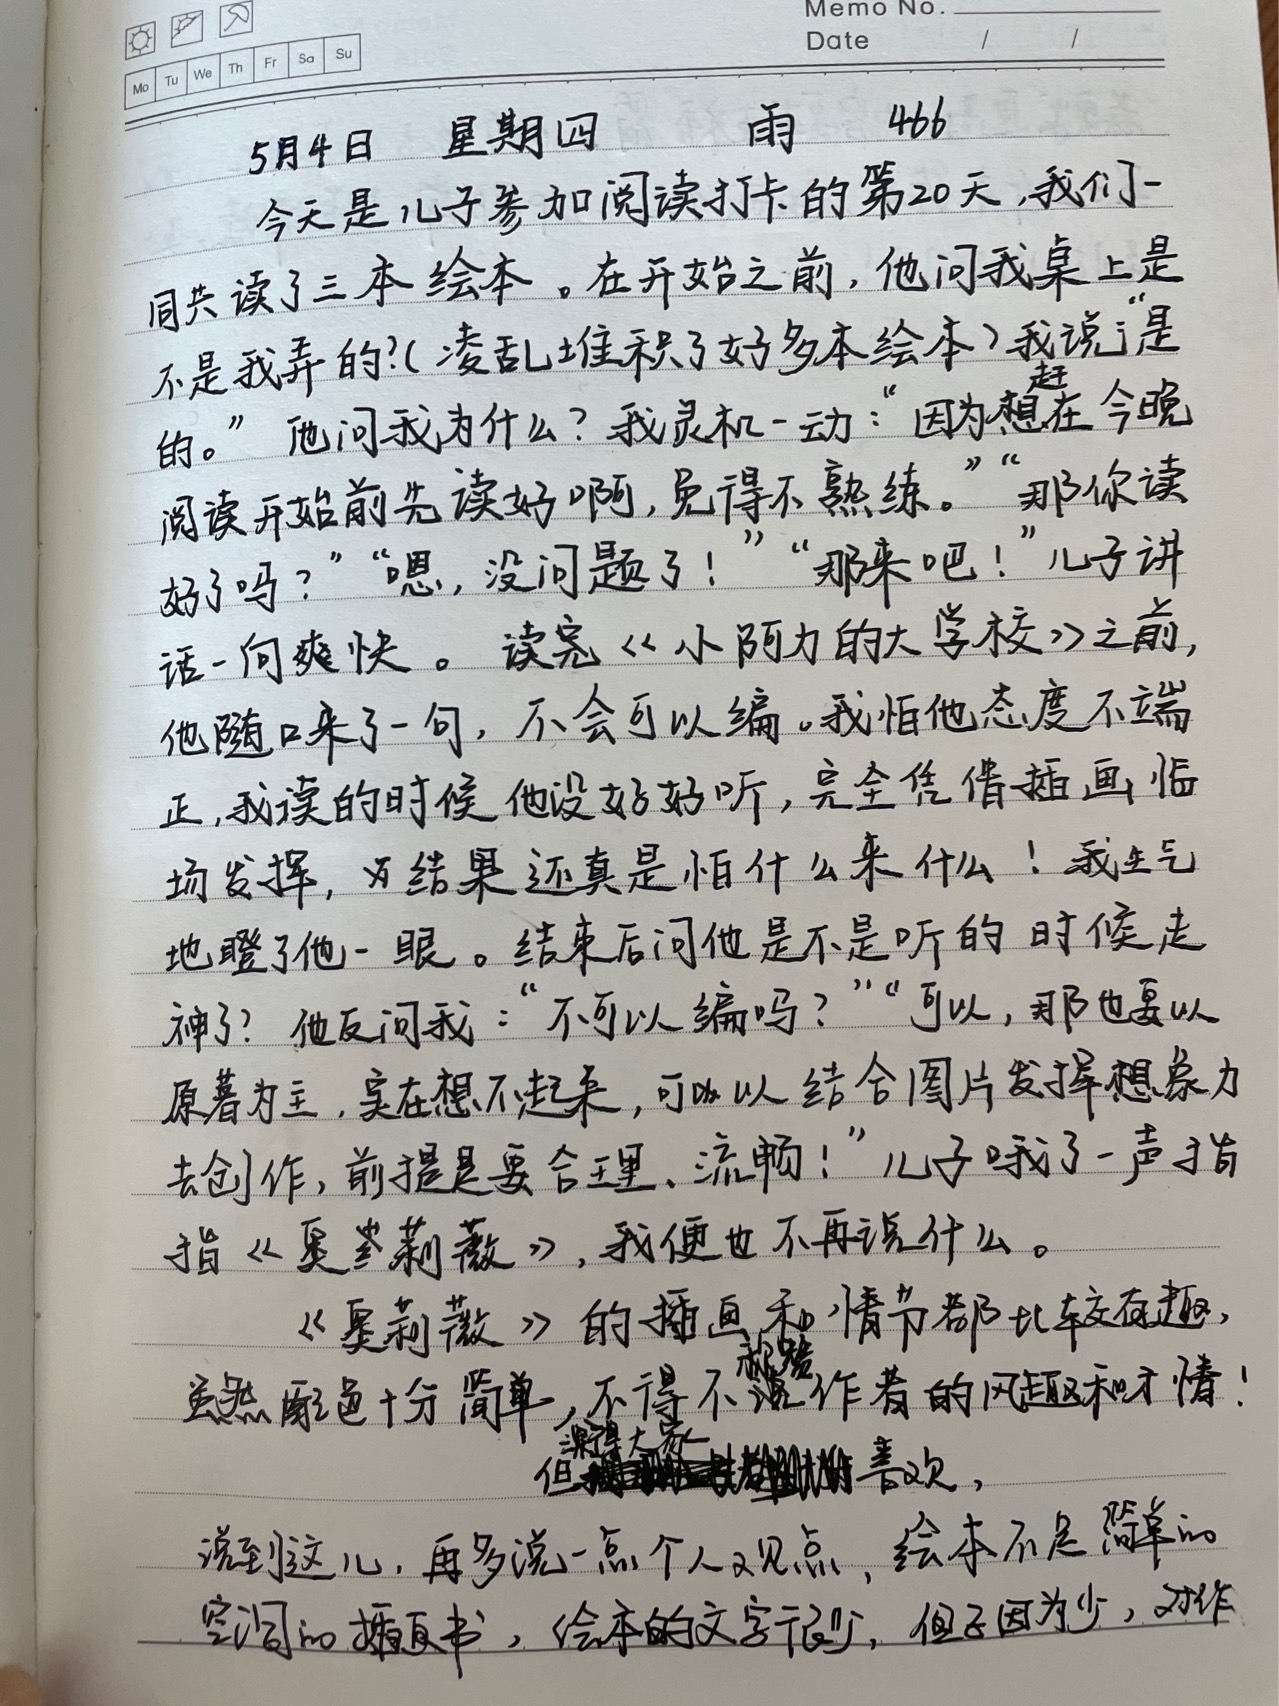 Memo No.
Date / /
Mo Tu We Th Fr Sa Su
5月4日 星期四 雨 466
今天是儿子参加阅读打卡的第20天,我们一
同共读了三本绘本。在开始之前,他问我桌上是
不是我弄的?(凌乱堆积了好多本绘本)我说:“是
的。”他问我为什么?我灵机一动:“因为想赶在今晚
阅读开始前先读好啊,免得不熟练。”“那你读
好了吗?”“嗯,没问题了!”“那来吧!”儿子讲
话一向爽快。读完《小阿力的大学校》之前,
他随口来了一句,不会可以编。我怕他态度不端
正,我读的时候他没好好听,完全凭借插画临
场发挥,结果还真是怕什么来什么!我生气
地瞪了他一眼。结束后问他是不是听的时候走
神了?他反问我:“不可以编吗?”“可以,那也要以
原著为主,实在想不起来,可以结合图片发挥想象力
去创作,前提是要合理、流畅!”儿子哦了一声指
指《奥莉薇》,我便也不再说什么。
《奥莉薇》的插画和情节都比较有趣,
虽然配色十分简单,不得不作者的风趣和才情!
但大家喜欢,
说到这儿,再多说一点个人观点,绘本不是简单的
空洞的插画书,绘本的文字很少,但正因为少,对作